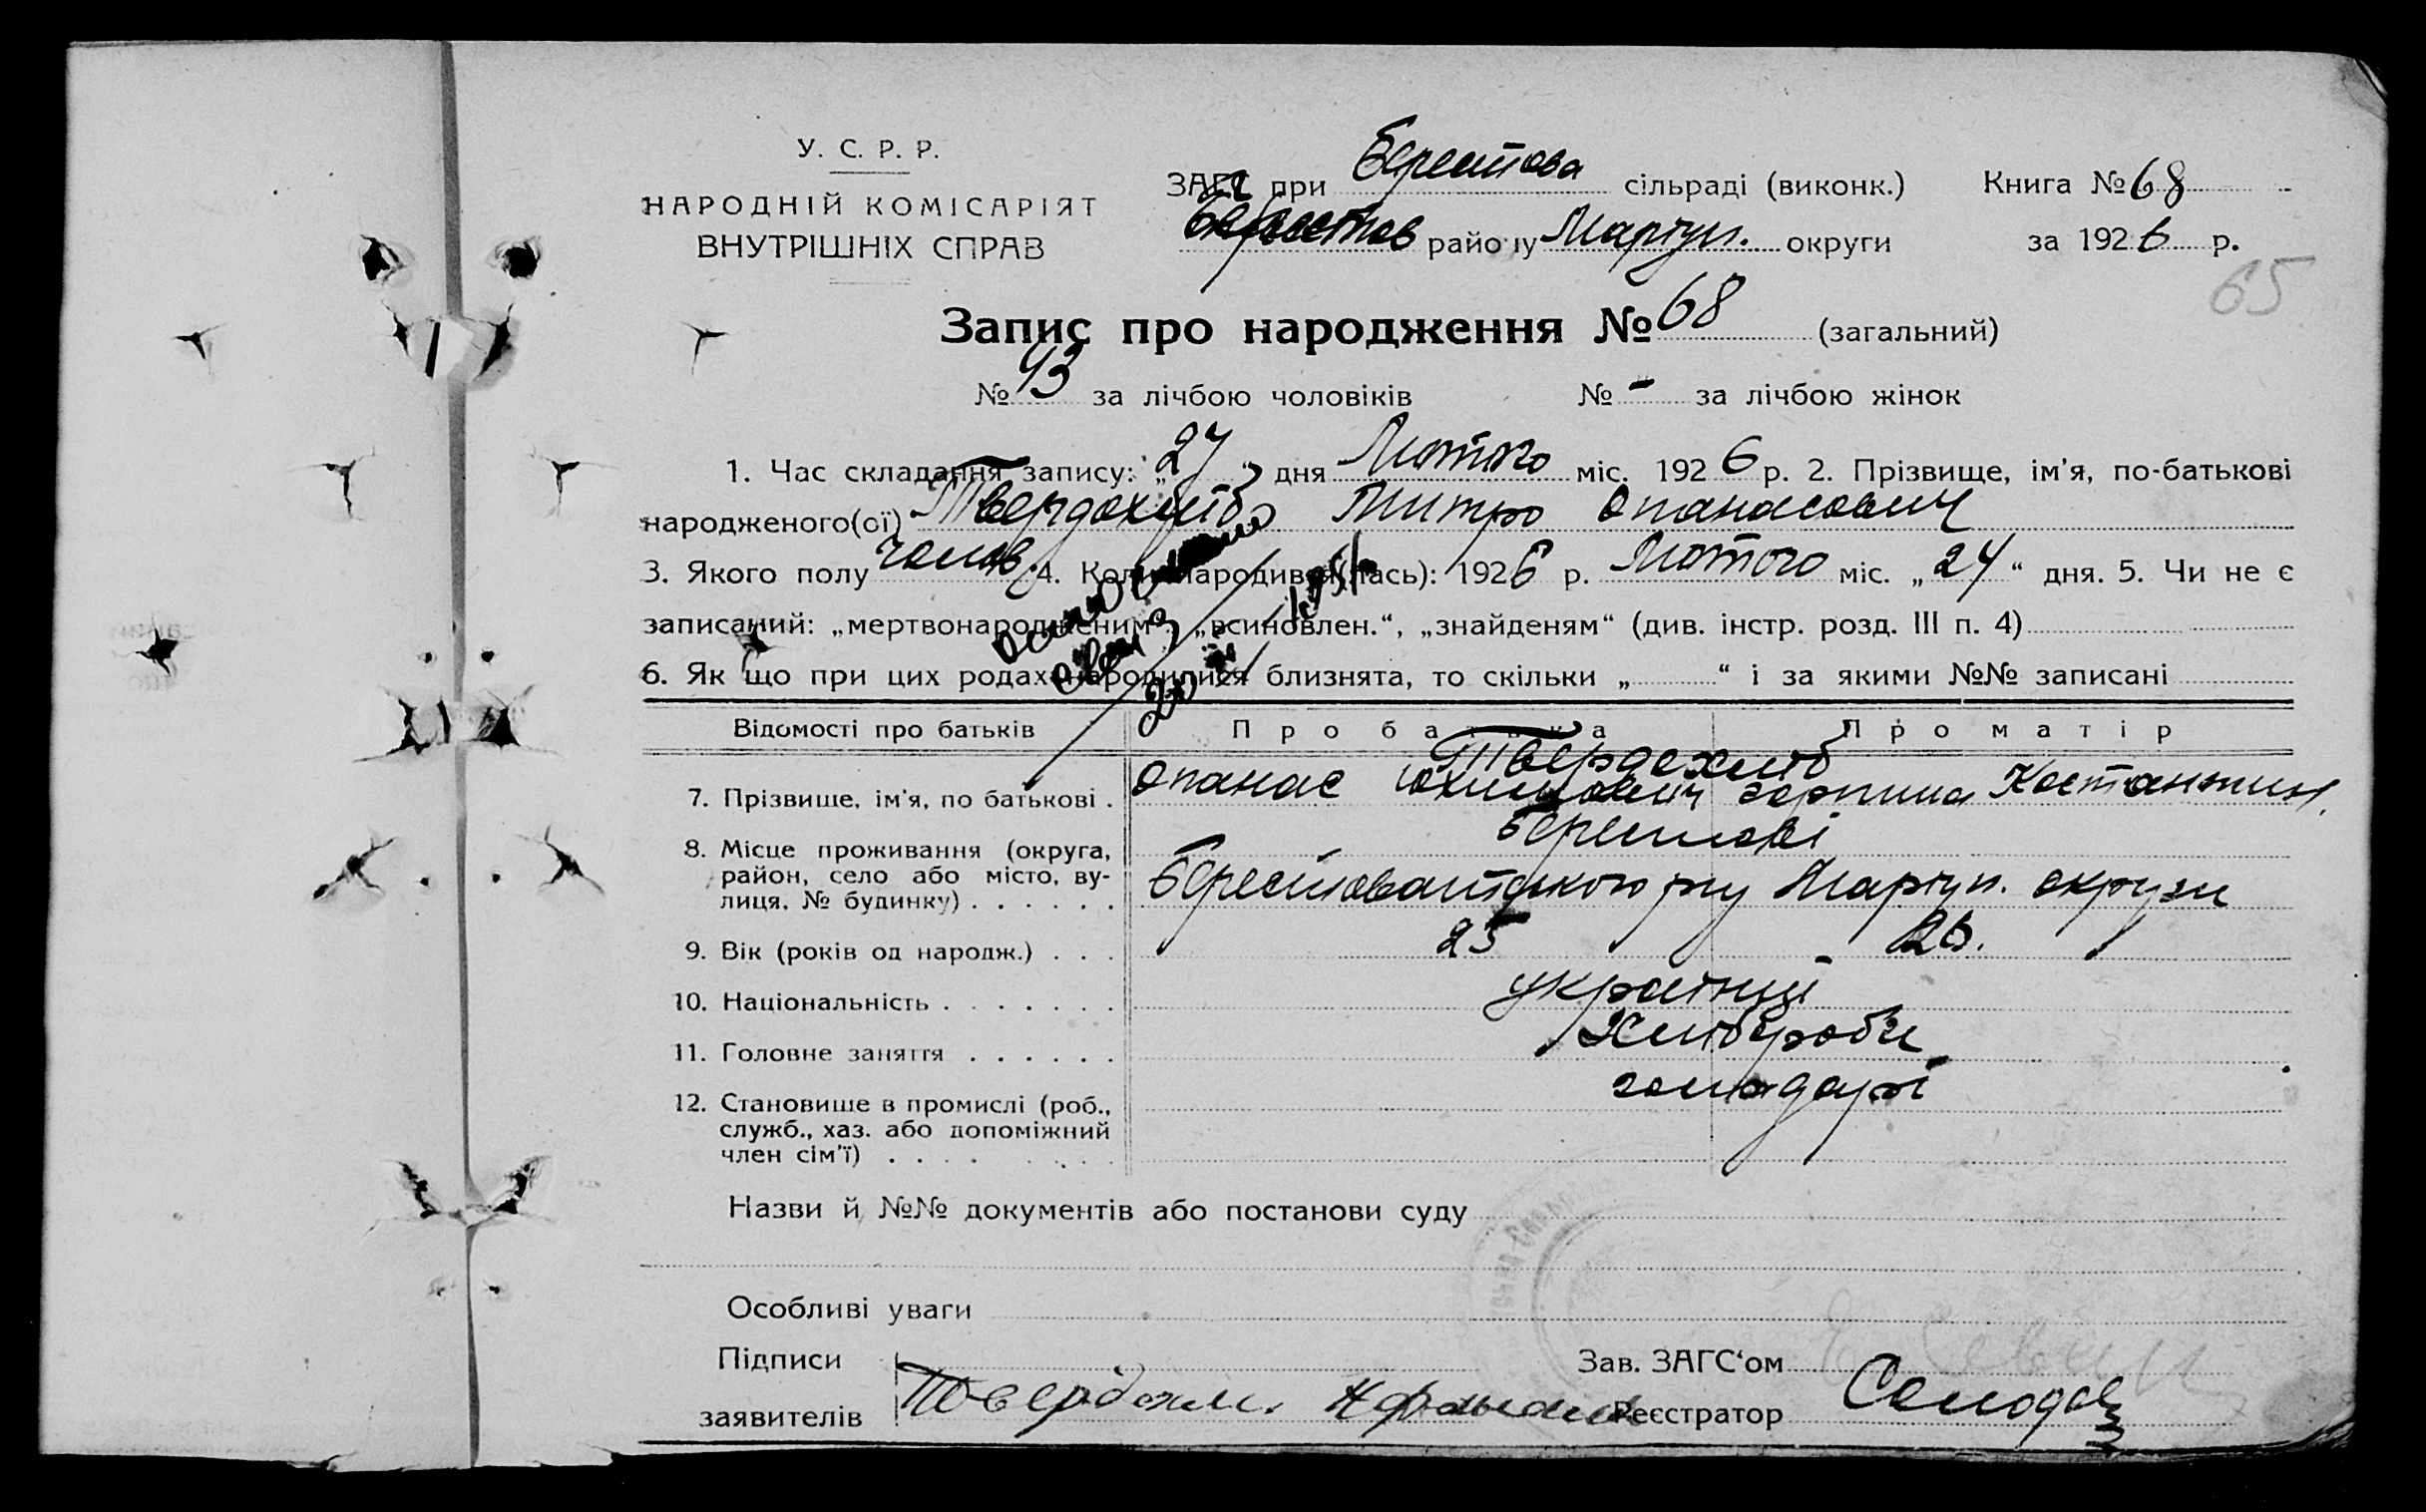 У. С. Р. Р.
НАРОДНІЙ КОМІСАРІЯТ
ВНУТРІШНІХ СПРАВ
ЗАГС при Берестова сільраді (виконк.) Книга № 68
Берестов району Маріуп. округи за 1926 р.
65
Запис про народження № 68 (загальний)
№ 43 за лічбою чоловіків № - за лічбою жінок
1. Час складання запису: „27“ дня Лютого міс. 1926 р. 2. Прізвище, ім'я, по-батькові
народженого(ої) Твердохліб Тимтро Опанасович
3. Якого полу чолов. 4. Коли народився(лась): 1926 р. Лютого міс. „24“ дня. 5. Чи не є
записаний: „мертвонародженим“, „всиновлен.“, „знайденям“ (див. інстр. розд. III п. 4)
6. Як що при цих родах народилися близнята, то скільки „ “ і за якими №№ записані
Відомості про батьків Про батька Про матір
Твердохліб
7. Прізвище, ім'я, по батькові . Опанас Юхимович Горпина Костантин.
Берестові
8. Місце проживання (округа,
район, село або місто, ву-
лиця, № будинку) . . . . . . Берестоватського р-ну Маріуп. округи
9. Вік (років од народж.) . . . 25 26.
10. Національність . . . . . . . українці
11. Головне заняття . . . . . . Хлібороби
12. Становище в промислі (роб.,
служб., хаз. або допоміжний
член сім'ї) . . . . господарі
Назви й №№ документів або постанови суду
Особливі уваги
Підписи Зав. ЗАГС'ом
заявителів Твердохли. Афанасий Реєстратор